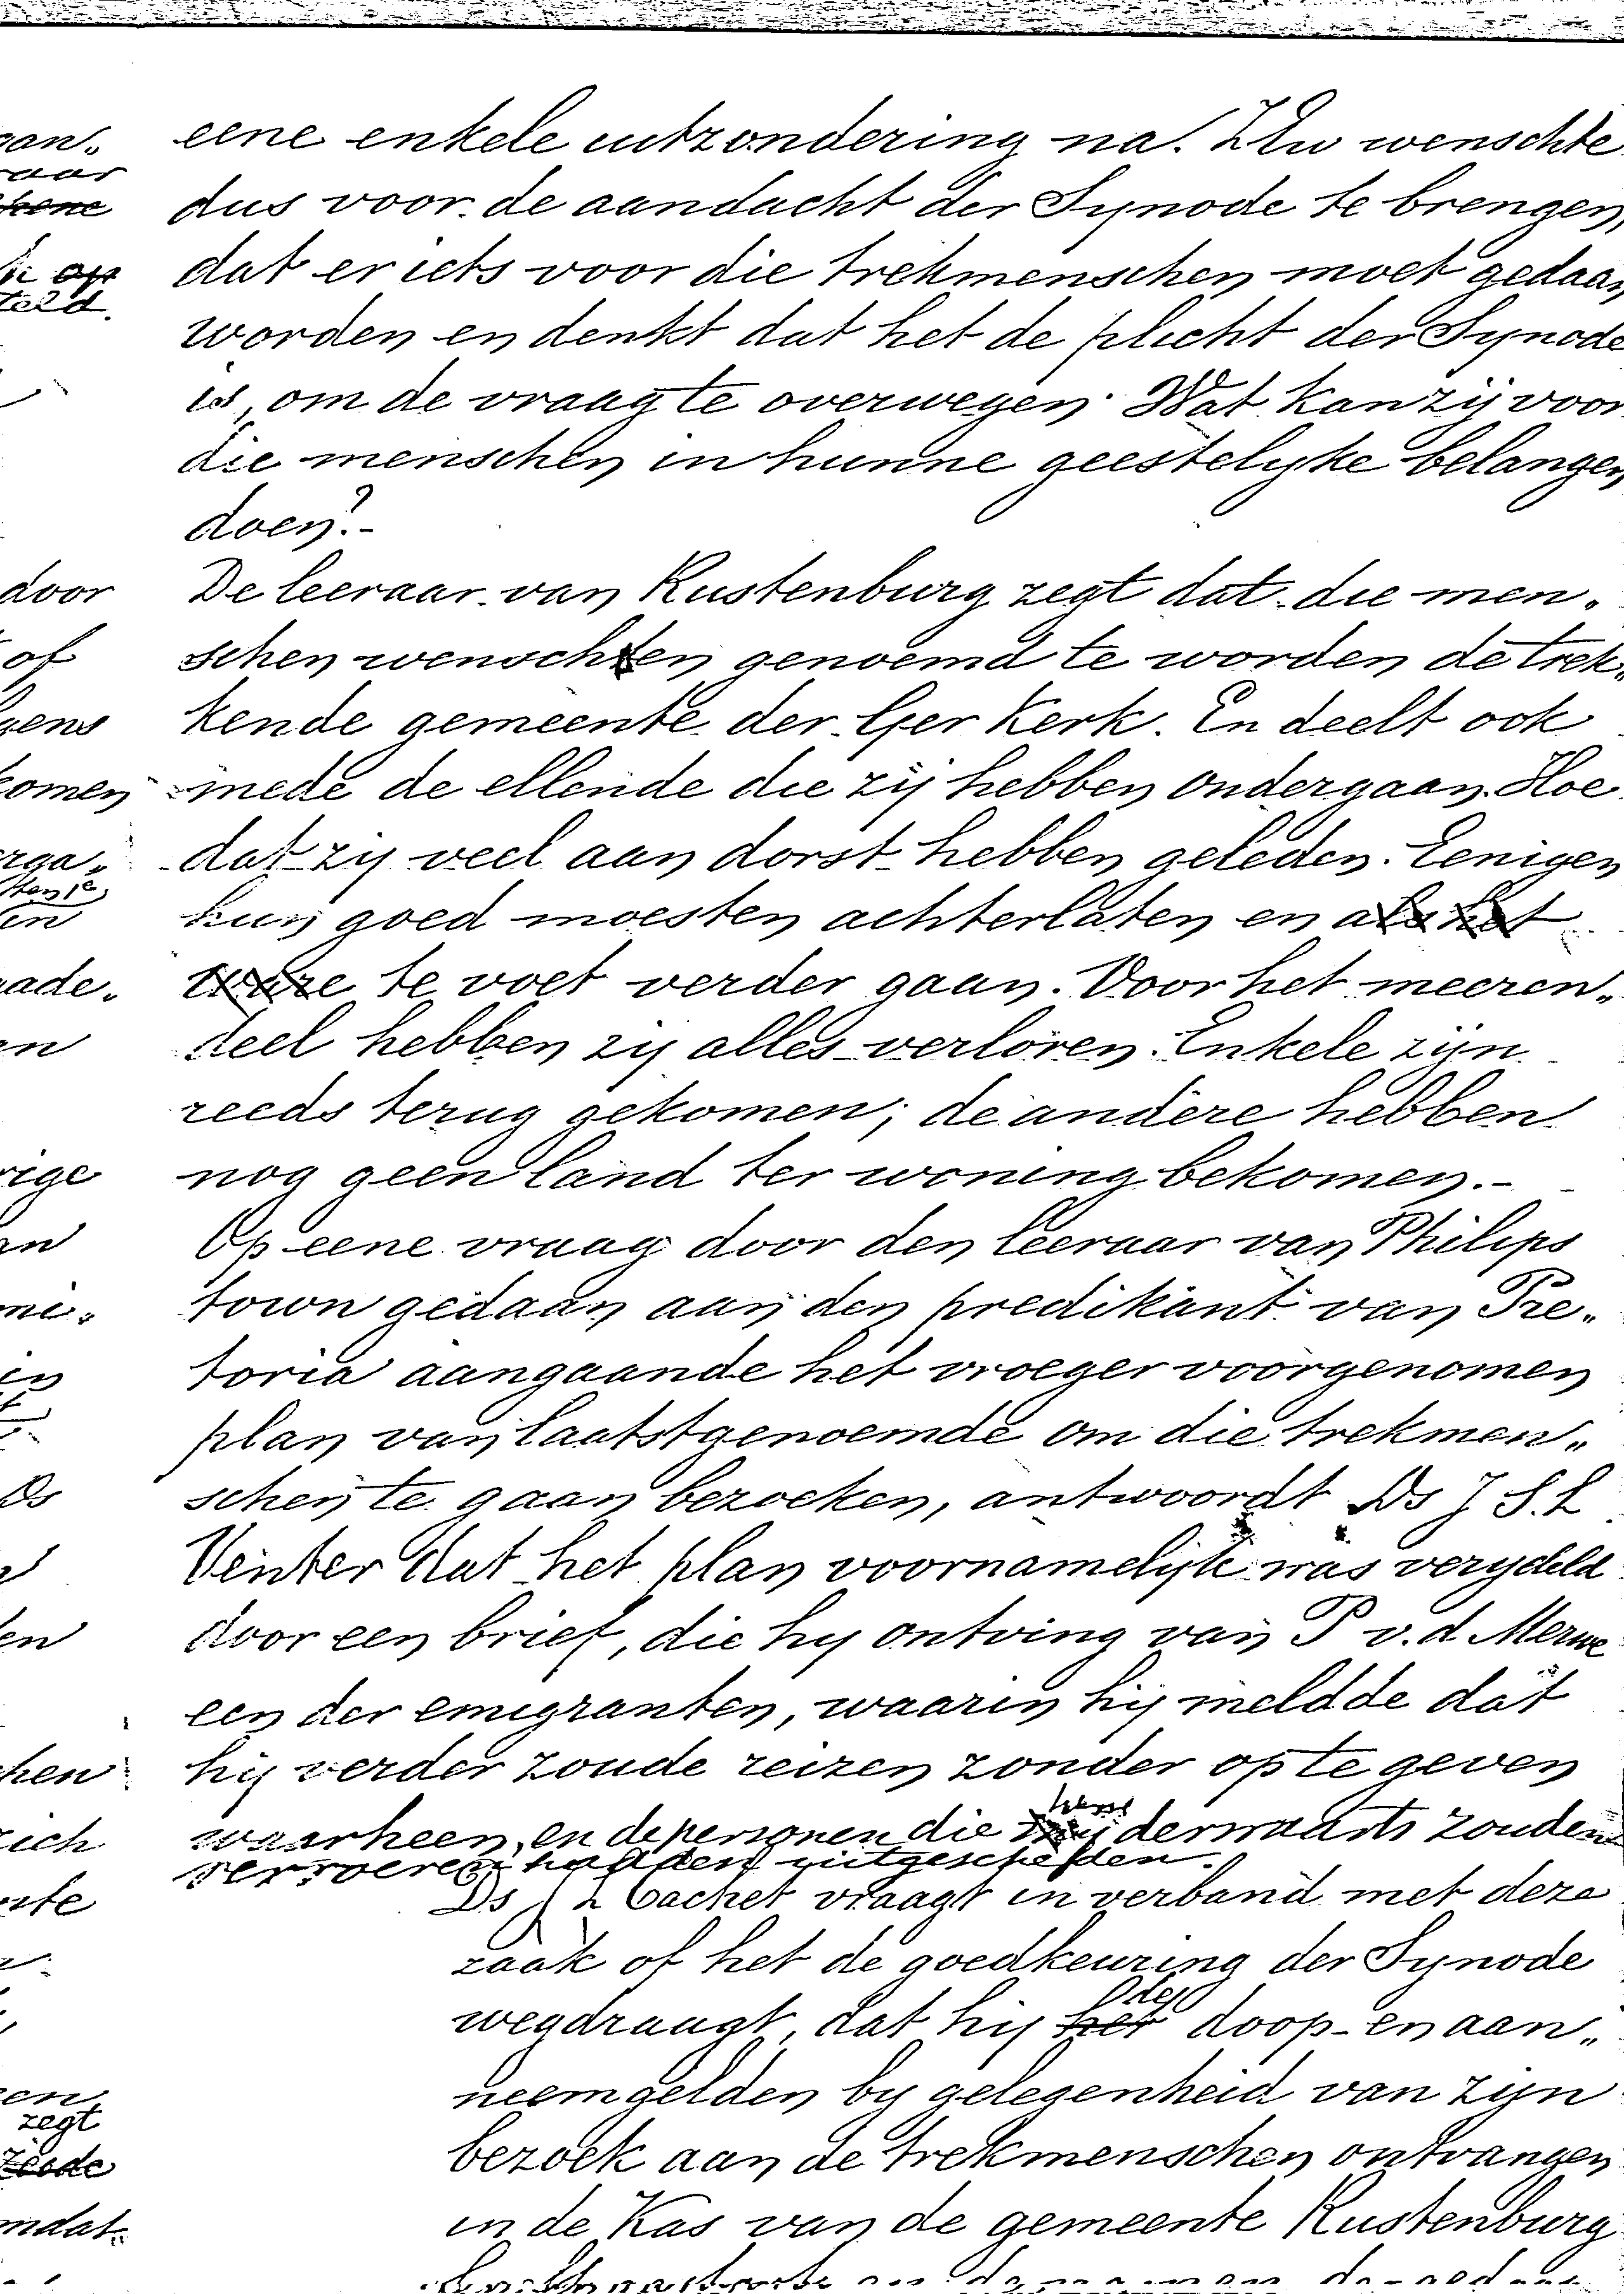 eene enkele uitzondering na. ZEw wenschte
dus voor de aandacht der Synode te brengen,
dat er iets voor die trekmenschen moet gedaan
worden en denkt dat het de plicht der Synode
is, om de vraag te overwegen. Wat kan zij voor
die menschen in hunne geestelyke belangen
doen?-
De leeraar van Rustenburg zegt dat die men„
schen wenschten genoemd te worden de trek„
kende gemeente der Ger Kerk. En deelt ook
mede de ellende die zij hebben ondergaan. Hoe
dat zy veel aan dorst hebben geleden. Eenigen
hun goed moesten achterlaten en als het
ware te voet verder gaan. Voor het meeren„
deel hebben zy alles verloren. Enkele zijn
reeds terug gekomen; de andere hebben
nog geen land ter woning bekomen.-
Op eene vraag door den leeraar van Philips
town gedaan aan den predikant van Pre„
toria aangaande het vroeger voorgenomen
plan van laatstgenoemde om die trekmen„
schen te gaan bezoeken, antwoordt Ds J S. L
Venter dat het plan voornamelijk was verydeld
door een brief, die hy ontving van P v. d. Merwe
een der emigranten, waarin hij meldde dat
hij verder zoude reizen zonder op te geven
waarheen, en de personen die derwaarts zouden
vervoeren hadden uitgescheiden.
Ds Cachet vraagt in verband met deze
zaak of het de goedkeuring der Synode
wegdraagt, dat hij het de doop- en aan„
neemgelden by gelegenheid van zijn
bezoek aan de trekmenschen ontvangen
in de Kas van de gemeente Rustenburg
door
of
gens
komen
zegt